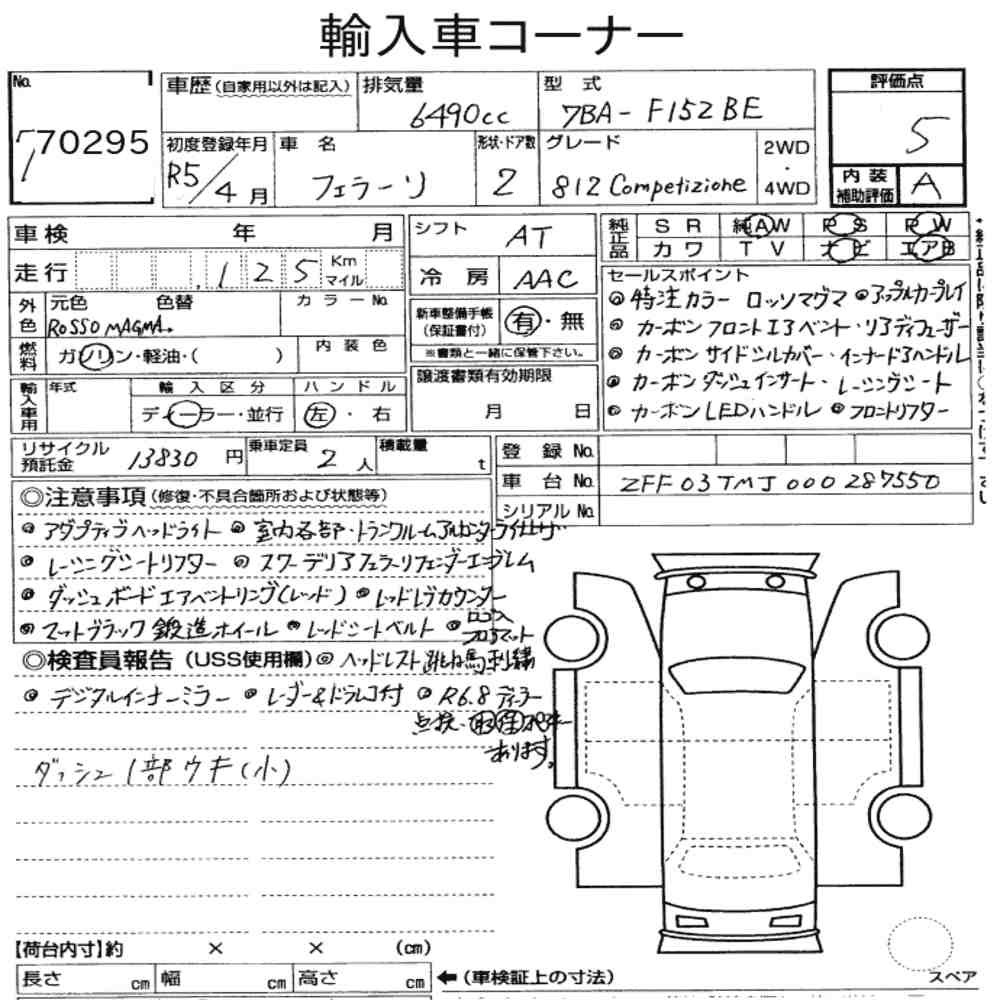 輸入車コーナー
No.
770295
車歴(自家用以外は記入)
排気量
6490cc
型式
7BA-F152BE
評価点
5
初度登録年月
R5/4月
車名
フェラーリ
形状・ドア数
2
グレード
812 Competizione
2WD
・
4WD
内装
補助評価
A
車検 年 月
シフト
AT
純正品
SR 純AW PS PW
カワ TV ナビ エアB
走行
.125
Km
マイル
冷房
AAC
外色
元色 色替
ROSSO MAGMA.
カラーNo.
新車整備手帳
(保証書付)
有・無
※書類と一緒に保管下さい。
燃料
ガソリン・軽油・( )
内装色
セールスポイント
特注カラー ロッソマグマ ◎アップルカープレイ
◎カーボンフロントエアベント・リアディフューザー
◎カーボンサイドシルカバー・インナードアハンドル
◎カーボンダッシュインサート・レーシングシート
◎カーボンLEDハンドル ◎フロントリフター
輸入車用
年式
輸入区分
ディーラー・並行
ハンドル
左・右
譲渡書類有効期限
月 日
リサイクル
預託金
13830円
乗車定員
2人
積載量
t
登録No.
車台No.
ZFF03TMJ000287550
シリアルNo.
◎注意事項(修復・不具合箇所および状態等)
◎アダプティブヘッドライト ◎室内各部・トランクルームアルカンターラ
◎レーシングシートリフター ◎スクーデリアフェラーリフェンダーエンブレム
◎ダッシュボードエアベントリング(レッド) ◎レッドレブカウンター
◎マットブラック鍛造ホイール ◎レッドシートベルト ◎ロゴ入フロアマット
◎検査員報告(USS使用欄) ◎ヘッドレスト跳ね馬刺繍
◎デジタルインナーミラー ◎レーダー&ドラレコ付 ◎R6.8ディーラー
点検・
あります。
ダッシュ1部ウキ(小)
【荷台内寸】約 × × (cm)
長さ cm 幅 cm 高さ cm
←(車検証上の寸法)
スペア